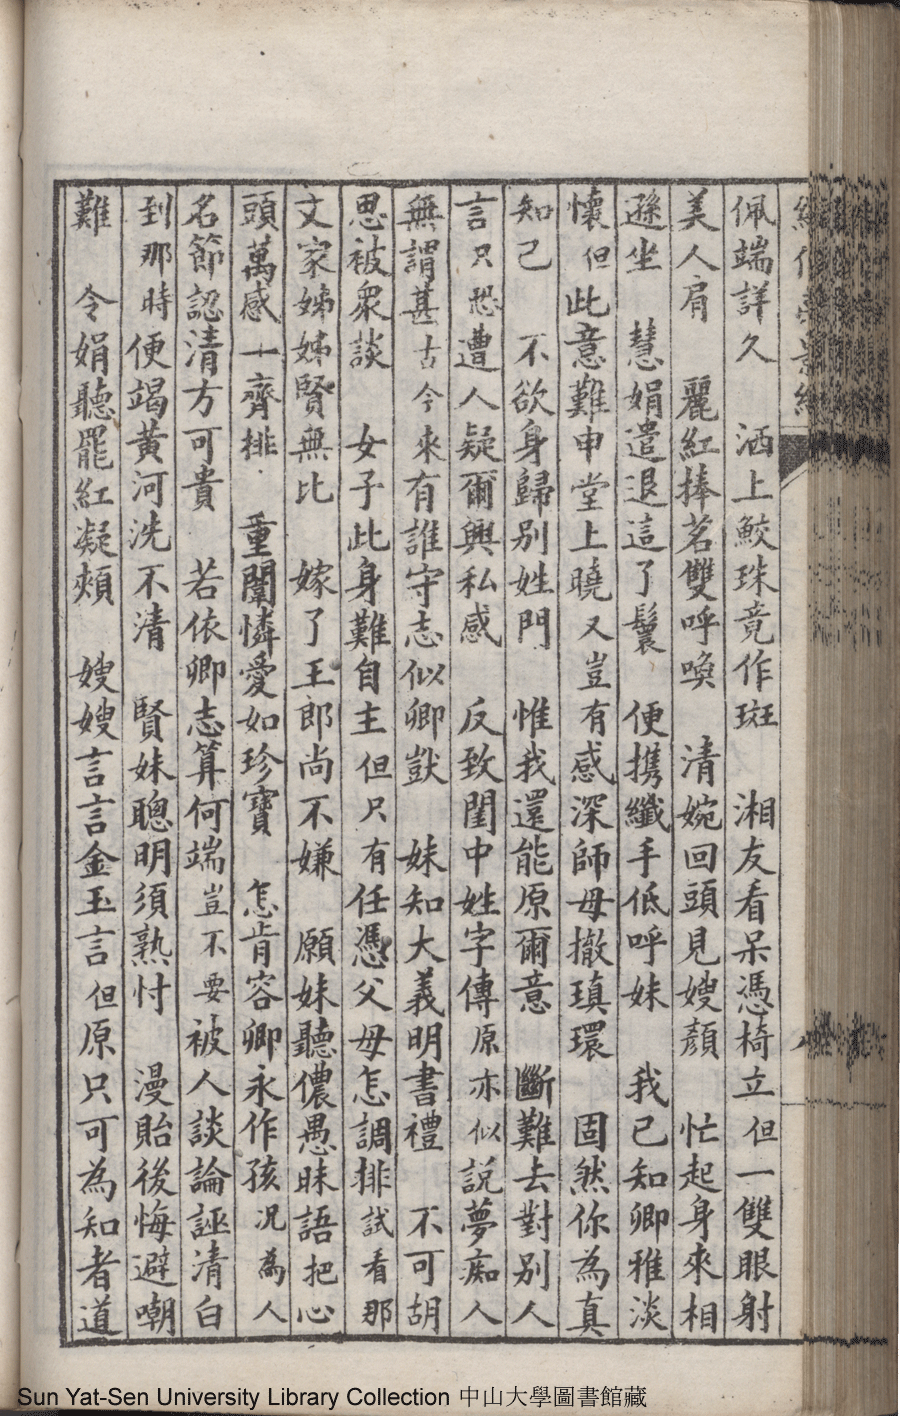 佩端詳久　洒上鮫珠竟作斑　湘友看呆憑椅立但一雙眼射
美人肩　麗紅捧茗雙呼喚　清婉回頭見嫂顏　忙起身來相
遜坐　慧娟遣退這了鬟　便携纖手低呼妹　我已知卿雅淡
懷但此意難申堂上曉又豈有感深師母撤瑱環　固然你為真
知己　不欲身歸别姓門　惟我還能原爾意　斷難去對别人
言只恐遭人疑爾興私感　反致閨中姓字傳原亦似説夢痴人
無謂甚古今來有誰守志似卿獃　妹知大義明書禮　不可胡
思被衆談　女子此身難自主但只有任憑父母怎調排試看那
文家姊姊賢無比　嫁了王郎尚不嫌　願妹聽儂愚昧語把心
頭萬感一齊排　重闈憐愛如珍寶　怎肯容卿永作孩况為人
名節認清方可貴　若依卿志算何端豈不要被人談論誣清白
到那時便竭黄河洗不清　賢妹聰明須熟忖　漫貽後悔避嘲
難　令娟聽罷紅凝頰　嫂嫂言言金玉言但原只可為知者道
Sun Yat-Sen University Library Collection 中山大學圖書館藏